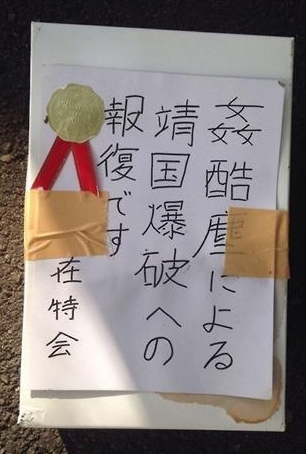 姦酷塵による
靖国爆破への
報復です
在特会